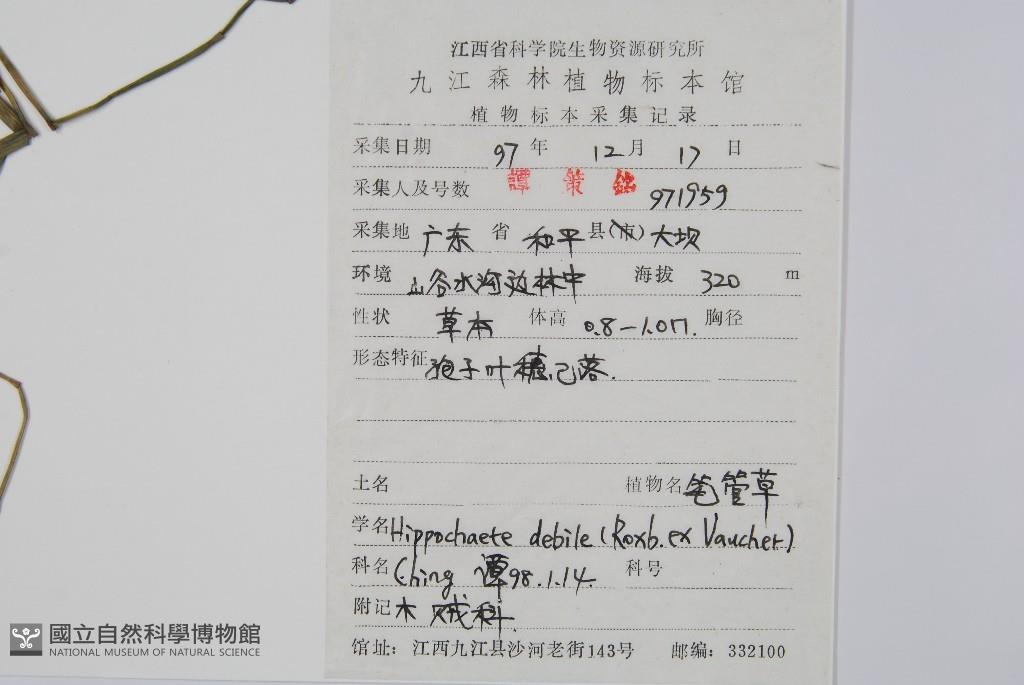 江西省科学院生物资源研究所
九江森林植物标本馆
植物标本采集记录
采集日期 97年 12月 17日
采集人及号数 譚策銘 971959
采集地 广东 省 和平 县(市) 大坝
环境 山谷水沟边林中 海拔 320 m
性状 草本 体高 0.8-1.0m. 胸径
形态特征 孢子叶穗已落.
土名 植物名 笔管草
学名 Hippochaete debile (Roxb. ex Vaucher)
科名 Ching 谭 98.1.14. 科号
附记 木贼科.
馆址：江西九江县沙河老街143号 邮编：332100
國立自然科學博物館
NATIONAL MUSEUM OF NATURAL SCIENCE